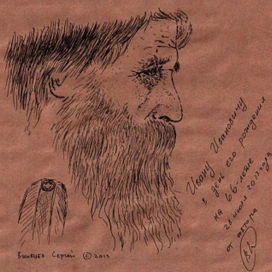 Ивану Ивановичу
в день его рождения
на 66-летие
28 июля 2013 года
от автора
Сергей © 2013